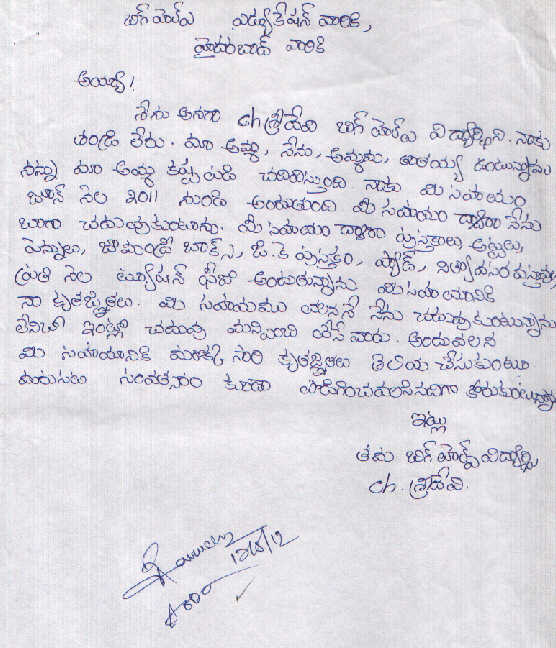 బిగ్ హెల్ప్ ఎడ్యుకేషన్ వారికి,
హైదరాబాద్ వారికి
అయ్యా!
నేను అనగా ch శ్రీదేవి బిగ్ హెల్ప్ విద్యార్థిని. నాకు
తండ్రి లేరు. మా అమ్మ, నేను, అమ్మమ్మ, తాతయ్య ఉంటున్నాము
నన్ను మా అమ్మ కష్టపడి చదివిస్తుంది. నాకు మీ సహాయం
జూన్ నెల 2011 నుండి అందుతుంది మీ సహాయం ద్వారా నేను
బాగా చదువుకుంటాను. మీ సహాయం ద్వారా పుస్తకాలు, అట్టలు,
పెన్నులు, జామెండ్రి బాక్స్, జి.కె పుస్తకం, ప్యాడ్, నిత్యావసర వస్తువులు,
ప్రతి నెల ట్యూషన్ ఫీజు అందుతున్నాను మీ సహాయానికి
నా కృతజ్ఞతలు. మీ సహాయము వలననే నేను చదువుకుంటున్నాను
లేనిచో ఇంట్లో చదువు మాన్పించి వేసే వారు. అందువలన
మీ సహాయానికి మరొక్క సారి కృతజ్ఞతలు తెలియ చేసుకుంటూ
మరుసటి సంవత్సరం కూడా పొడిగించవలసినదిగా కోరుకుంటున్నాను
ఇట్లు
తమ బిగ్ హెల్ప్ విద్యార్థి,
ch. శ్రీదేవి.